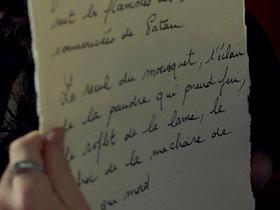 les flammes
de Satan
Le recul du mousquet, l'éclair
de la poudre qui prend feu,
le reflet de la lame, le
de la machoire de
qui mord.